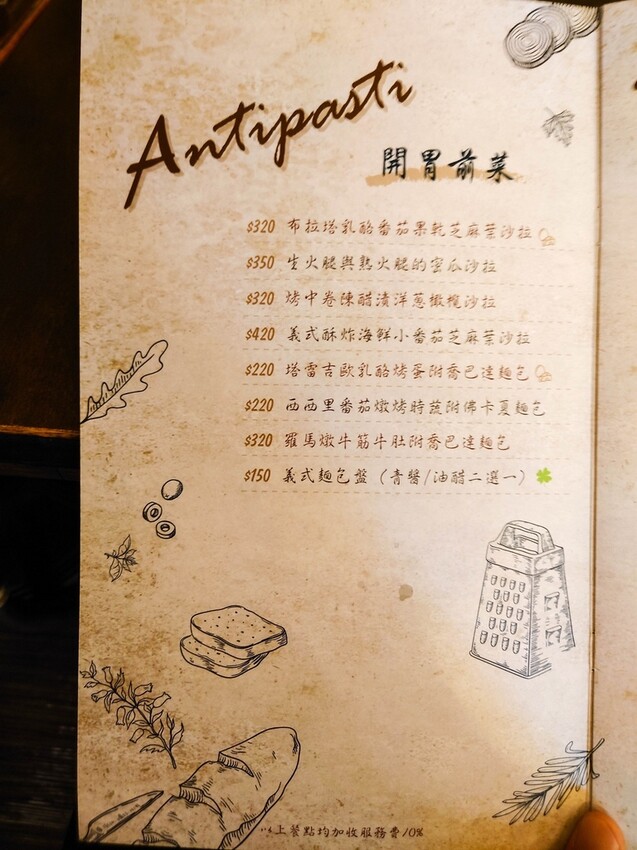 Antipasti
開胃前菜
$320 布拉塔乳酪番茄果乾芝麻葉沙拉
$350 生火腿與熟火腿的蜜瓜沙拉
$320 烤中卷陳醋漬洋蔥橄欖沙拉
$420 義式酥炸海鮮小番茄芝麻葉沙拉
$220 塔雷吉歐乳酪烤蛋附喬巴達麵包
$220 西西里番茄燉烤時蔬附佛卡夏麵包
$320 羅馬燉牛筋牛肚附喬巴達麵包
$150 義式麵包盤（青醬/油醋二選一）
以上餐點均加收服務費10%